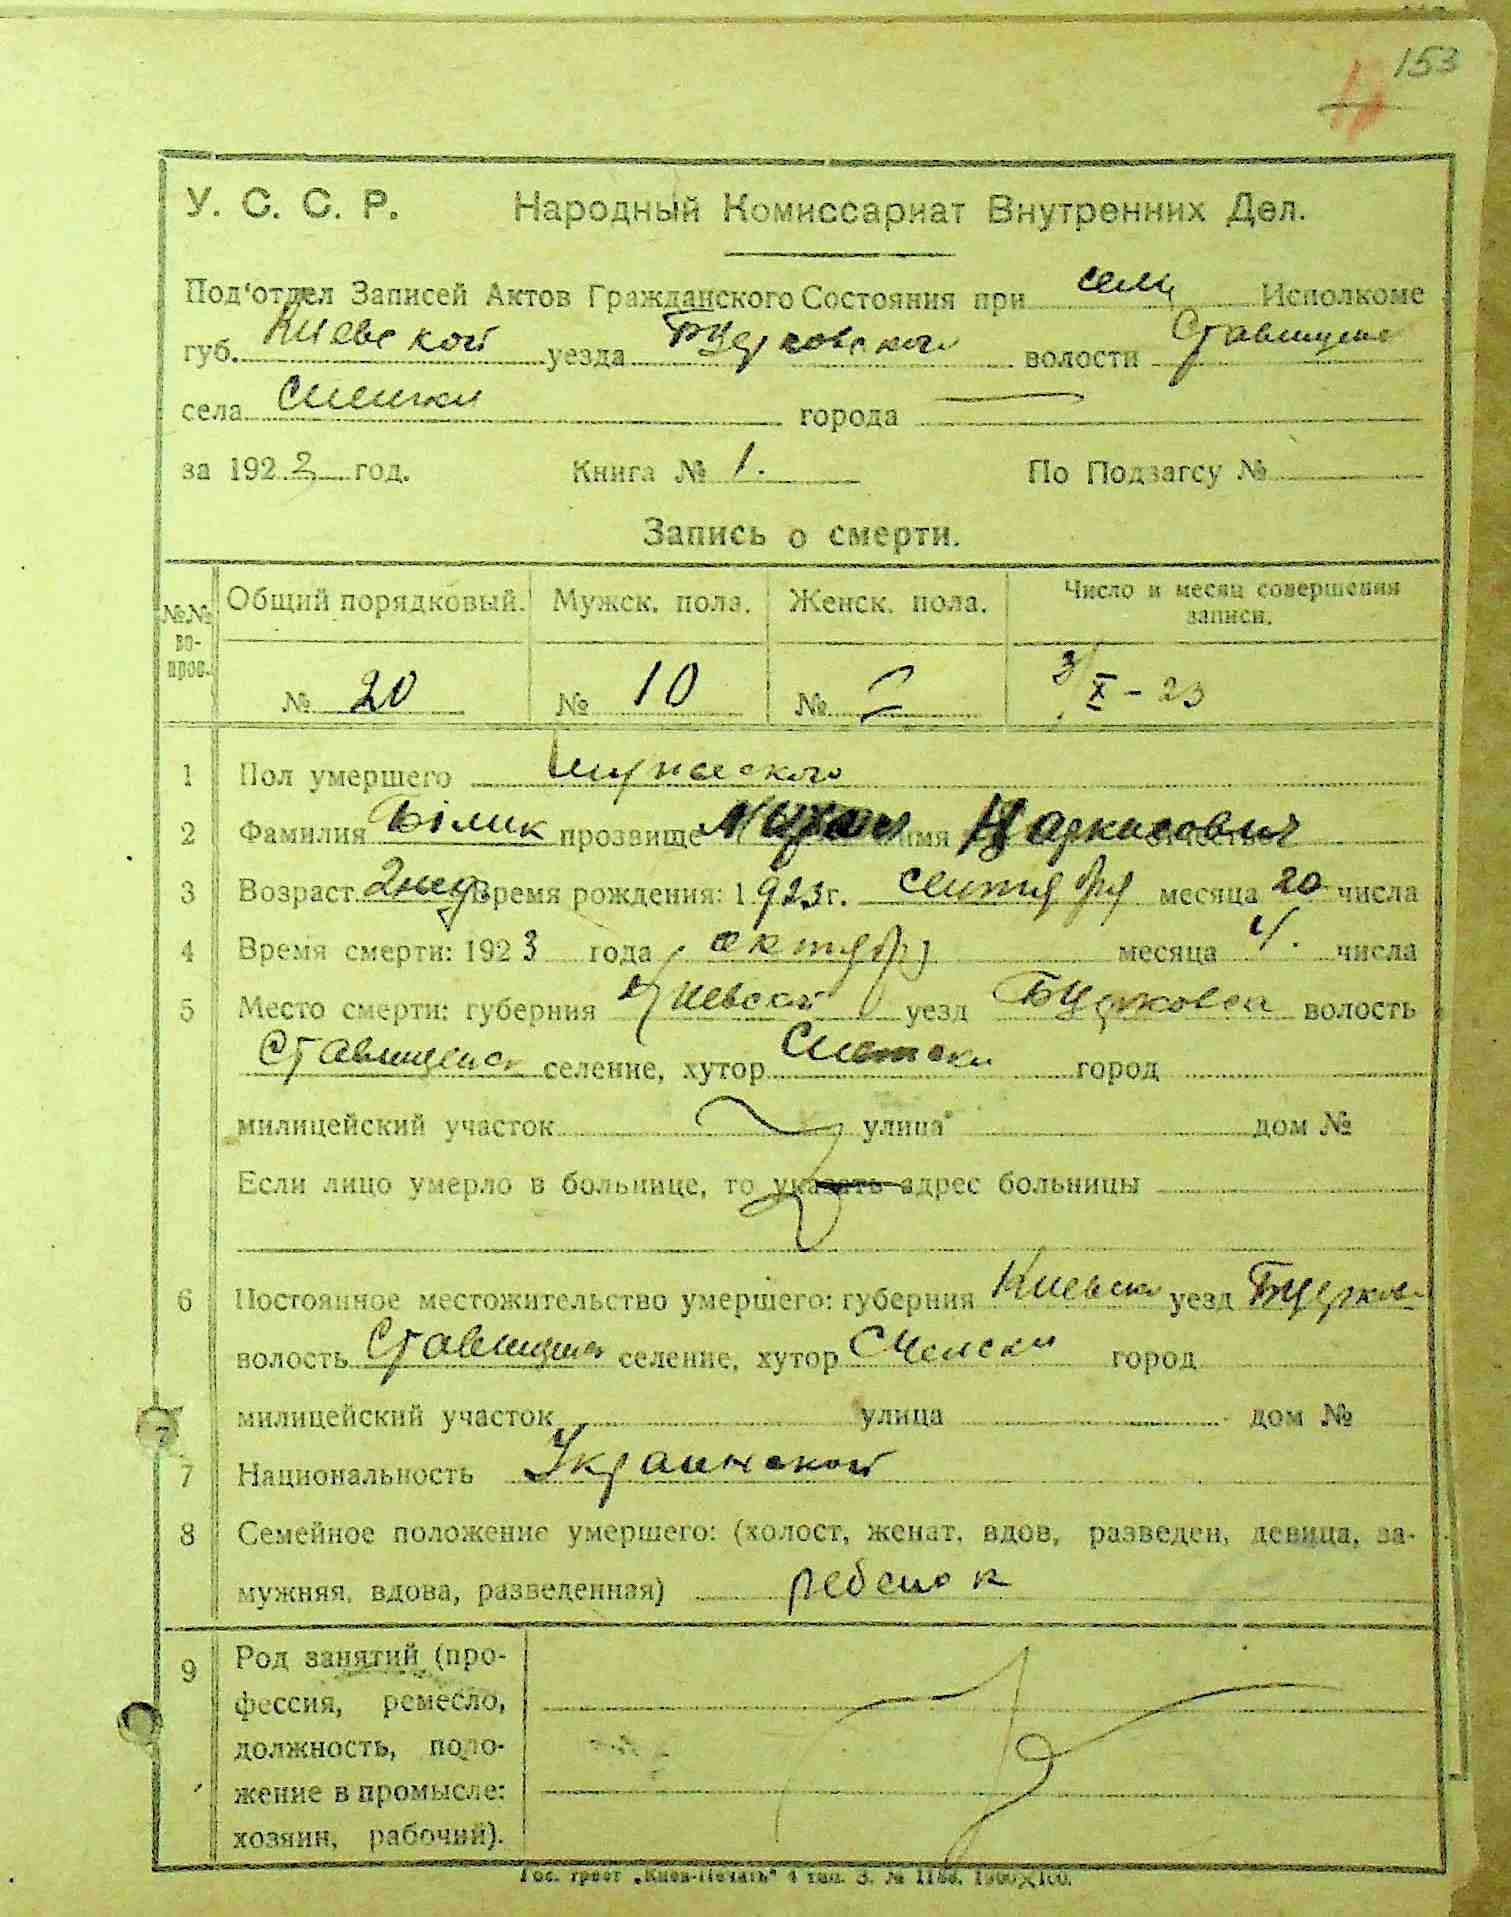 153
У. С. С. Р. Народный Комиссариат Внутренних Дел.
Под'отдел Записей Актов Гражданского Состояния при сели Исполкоме
губ. Киевской уезда БЦерковской волости Ставищен
села города
за 1923 год. Книга № 1. По Подзагсу №
Запись о смерти.
№№ вопрос. Общий порядковый. Мужск. пола. Женск. пола. Число и месяц совершения записи.
№ 20 № 10 № 3/X - 23
1 Пол умершего мужеского
2 Фамилия Білик прозвище имя Наркисович отчество
3 Возраст 2 нед Время рождения: 1923 г. сентября месяца 20 числа
4 Время смерти: 1923 года октября месяца 4. числа
5 Место смерти: губерния Киевской уезд БЦерковск волость
Ставищенск селение, хутор город
милицейский участок улица дом №
Если лицо умерло в больнице, то указать адрес больницы
6 Постоянное местожительство умершего: губерния Киевск уезд БЦерков
волость Ставищен селение, хутор город
милицейский участок улица дом №
7 Национальность Украинской
8 Семейное положение умершего: (холост, женат, вдов, разведен, девица, за-
мужняя, вдова, разведенная) ребенок
9 Род занятий (про-
фессия, ремесло,
должность, поло-
жение в промысле:
хозяин, рабочий).
Гос. трест „Киев-Печать" 4 тип. З. №